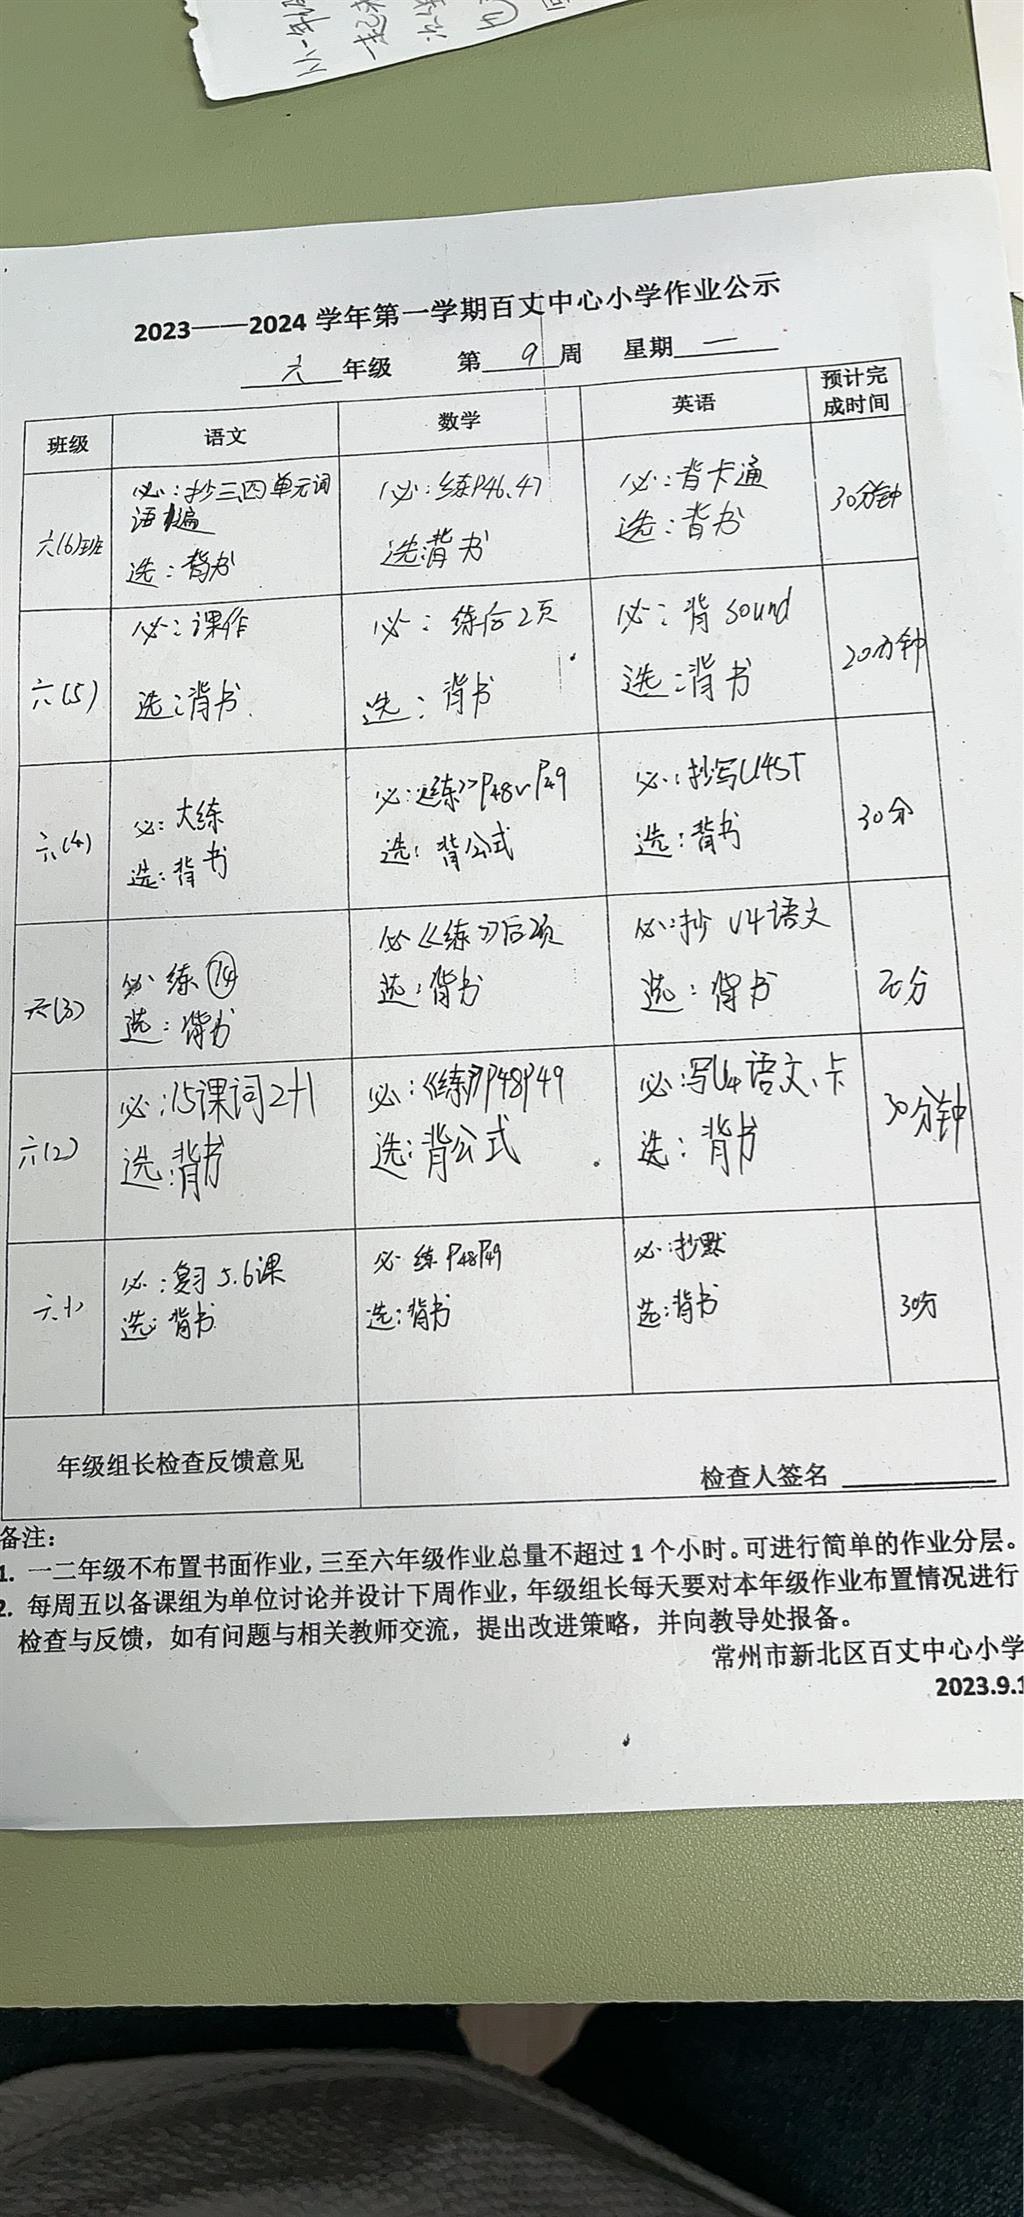 2023——2024 学年第一学期百丈中心小学作业公示
六 年级 第 9 周 星期 一
班级 语文 数学 英语 预计完
成时间
六(6)班 必：抄三、四单元词 必：练P46、47 必：背卡通 30分钟
语1遍
选：背书 选：背书 选：背书
六(5) 必：课作 必：练后2页 必：背 sound 20分钟
选：背书 选：背书 选：背书
六(4) 必：大练 必：《练》P48、P49 必：抄写U4ST 30分
选：背书 选：背公式 选：背书
六(3) 必 练⑭ 必《练》后2页 必：抄 U4 语文 分
选：背书 选：背书 选：背书
六(2) 必：15课词2+1 必：《练》P48P49 必：写U4 语文、卡 30分钟
选：背书 选：背公式 选：背书
六(1) 必：复习 5.6课 必 练 P48P49 必：抄默 30分
选：背书 选：背书 选：背书
年级组长检查反馈意见
检查人签名
备注：
1. 一二年级不布置书面作业，三至六年级作业总量不超过 1 个小时。可进行简单的作业分层。
2. 每周五以备课组为单位讨论并设计下周作业，年级组长每天要对本年级作业布置情况进行
检查与反馈，如有问题与相关教师交流，提出改进策略，并向教导处报备。
常州市新北区百丈中心小学
2023.9.1